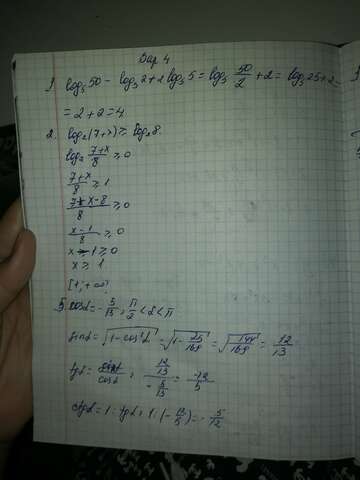 Вар 4
1. log₅50 - log₅2 + 2 log₅5 = log₅ 50/2 + 2 = log₅25 + 2 =
= 2 + 2 = 4
2. log₂(7+x) ≥ log₂8
log₂ (7+x)/8 ≥ 0
(7+x)/8 ≥ 1
(7+x-8)/8 ≥ 0
(x-1)/8 ≥ 0
x - 1 ≥ 0
x ≥ 1
[1; +∞)
5. cosα = -5/13, π/2 < α < π
sinα = √(1-cos²α) = √(1-25/169) = √(144/169) = 12/13
tgα = sinα/cosα = (12/13)/(-5/13) = -12/5
ctgα = 1 : tgα = 1 : (-12/5) = -5/12